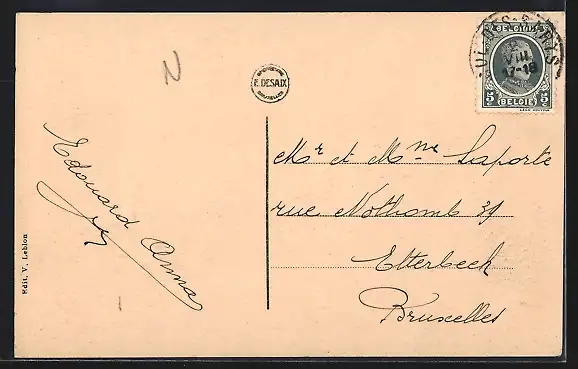 N
PHOTOTYPIE
E. DESAIX
BRUXELLES
BELGIQUE
5 5
BELGIË
VIII
17-18
Edouard Anna
Mr et Mme Laporte
rue Nothomb 39
Etterbeek
Bruxelles
Edit. V. Leblon